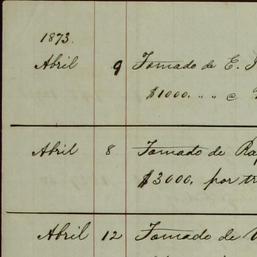 1873.
Abril 9 Tomado de E.
$1000. " " @
Abril 8 Tomado de
$3000. por
Abril 12 Tomado de